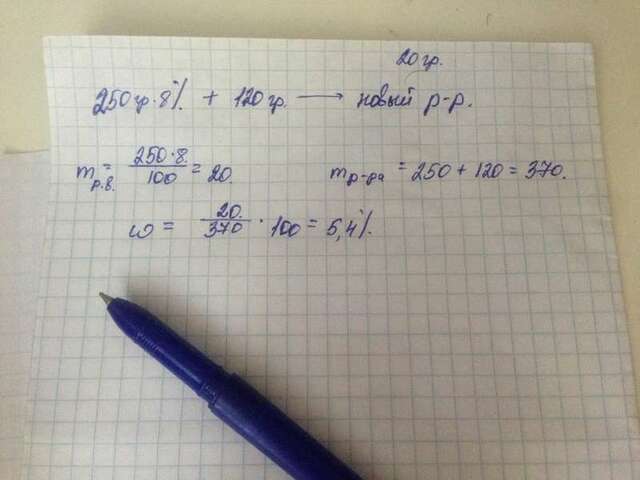 20 гр.
250 гр. 8% + 120 гр. → новый р-р.
m р.в. = 250·8/100 = 20. m р-ра = 250 + 120 = 370.
ω = 20/370 · 100 = 5,4%.